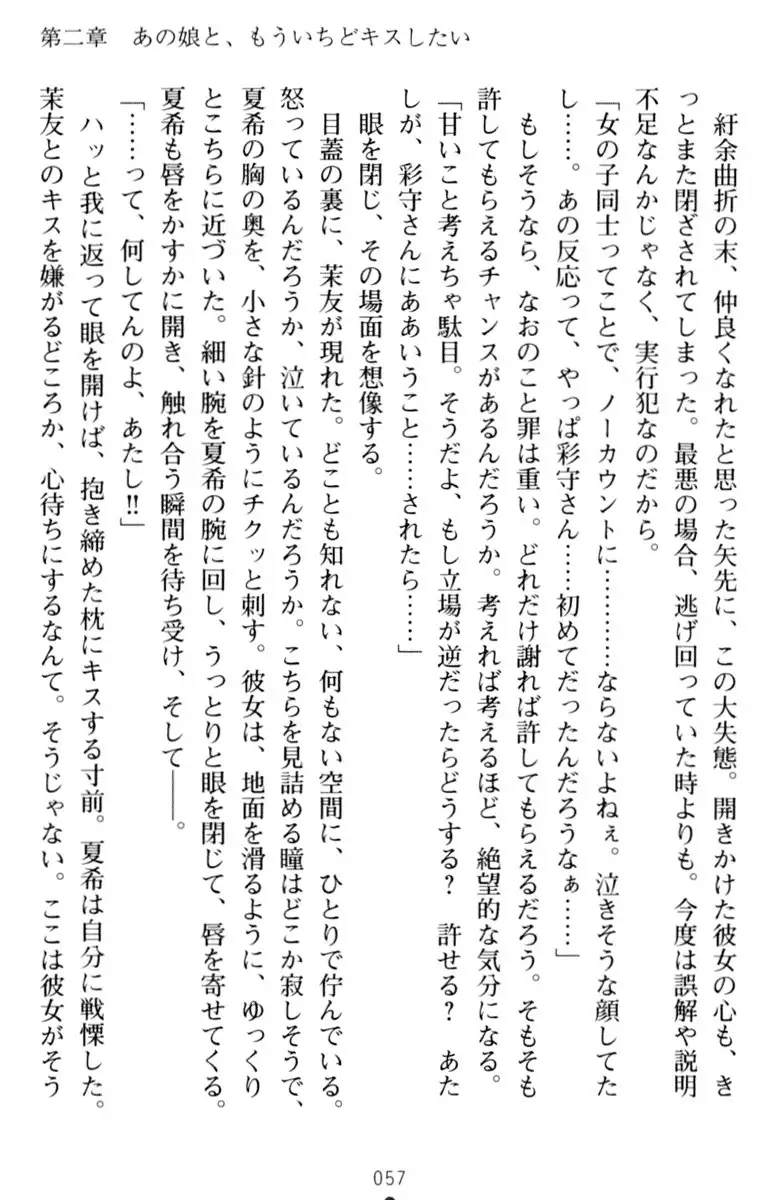 第二章　あの娘と、もういちどキスしたい
紆余曲折の末、仲良くなれたと思った矢先に、この大失態。開きかけた彼女の心も、き
っとまた閉ざされてしまった。最悪の場合、逃げ回っていた時よりも。今度は誤解や説明
不足なんかじゃなく、実行犯なのだから。
「女の子同士ってことで、ノーカウントに…………ならないよねぇ。泣きそうな顔してた
し……。あの反応って、やっぱ彩守さん……初めてだったんだろうなぁ……」
もしそうなら、なおのこと罪は重い。どれだけ謝れば許してもらえるだろう。そもそも
許してもらえるチャンスがあるんだろうか。考えれば考えるほど、絶望的な気分になる。
「甘いこと考えちゃ駄目。そうだよ、もし立場が逆だったらどうする？　許せる？　あた
しが、彩守さんにああいうこと……されたら……」
眼を閉じ、その場面を想像する。
目蓋の裏に、茉友が現れた。どことも知れない、何もない空間に、ひとりで佇んでいる。
怒っているんだろうか、泣いているんだろうか。こちらを見詰める瞳はどこか寂しそうで、
夏希の胸の奥を、小さな針のようにチクッと刺す。彼女は、地面を滑るように、ゆっくり
とこちらに近づいた。細い腕を夏希の腕に回し、うっとりと眼を閉じて、唇を寄せてくる。
夏希も唇をかすかに開き、触れ合う瞬間を待ち受け、そして――。
「……って、何してんのよ、あたし!!」
ハッと我に返って眼を開けば、抱き締めた枕にキスする寸前。夏希は自分に戦慄した。
茉友とのキスを嫌がるどころか、心待ちにするなんて。そうじゃない。ここは彼女がそう
057